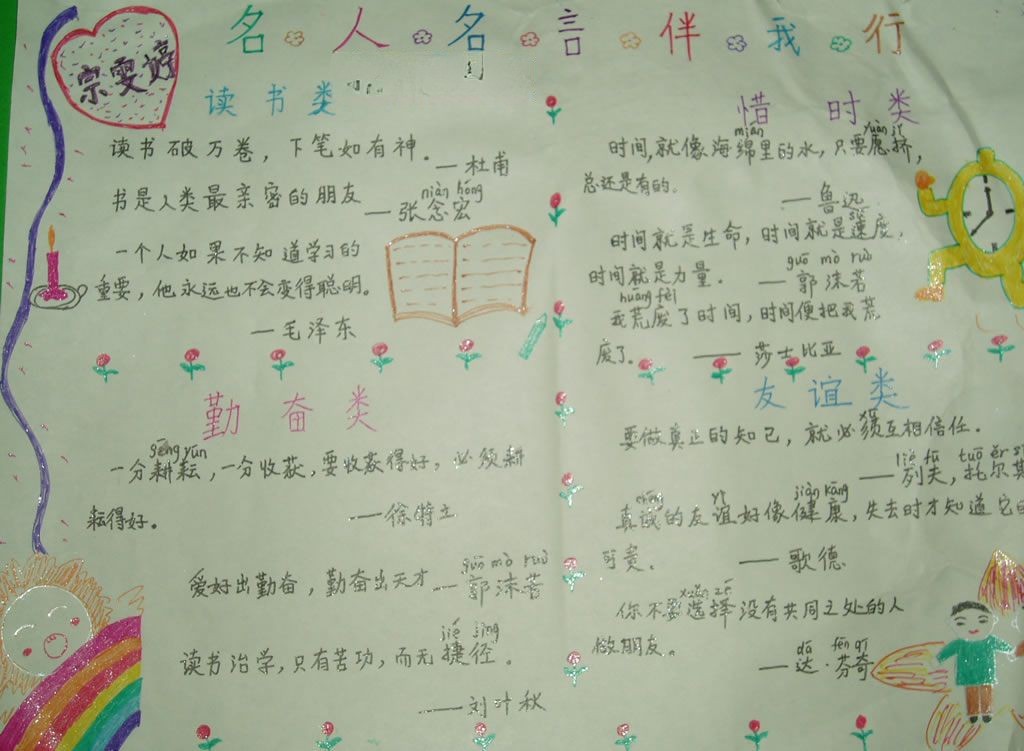 名人名言伴我行
宗雯婷
读书类
读书破万卷，下笔如有神。—杜甫
niàn hóng
书是人类最亲密的朋友—张念宏
一个人如果不知道学习的
重要，他永远也不会变得聪明。
—毛泽东
惜时类
mián yuàn jǐ
时间，就像海绵里的水，只要愿挤，
总还是有的。—鲁迅
sù
时间就是生命，时间就是速度，
guō mò ruò
时间就是力量．—郭沫若
huāng fèi
我荒废了时间，时间便把我荒
废了。——莎士比亚
勤奋类
gēng yún
一分耕耘，一分收获，要收获得好，必须耕
耘得好。—徐特立
guō mò ruò
爱好出勤奋，勤奋出天才—郭沫若
jié jìng
读书治学，只有苦功，而无捷径。
—刘叶秋
友谊类
要做真正的知己，就必须互相信任．
liè fū tuō ěr s
—列夫，托尔斯
chéng yì jiàn kāng
真诚的友谊好像健康，失去时才知道它的
可贵。—歌德
xuǎn zé
你不要选择没有共同之处的人
做朋友。
dá fēn qí
—达·芬奇